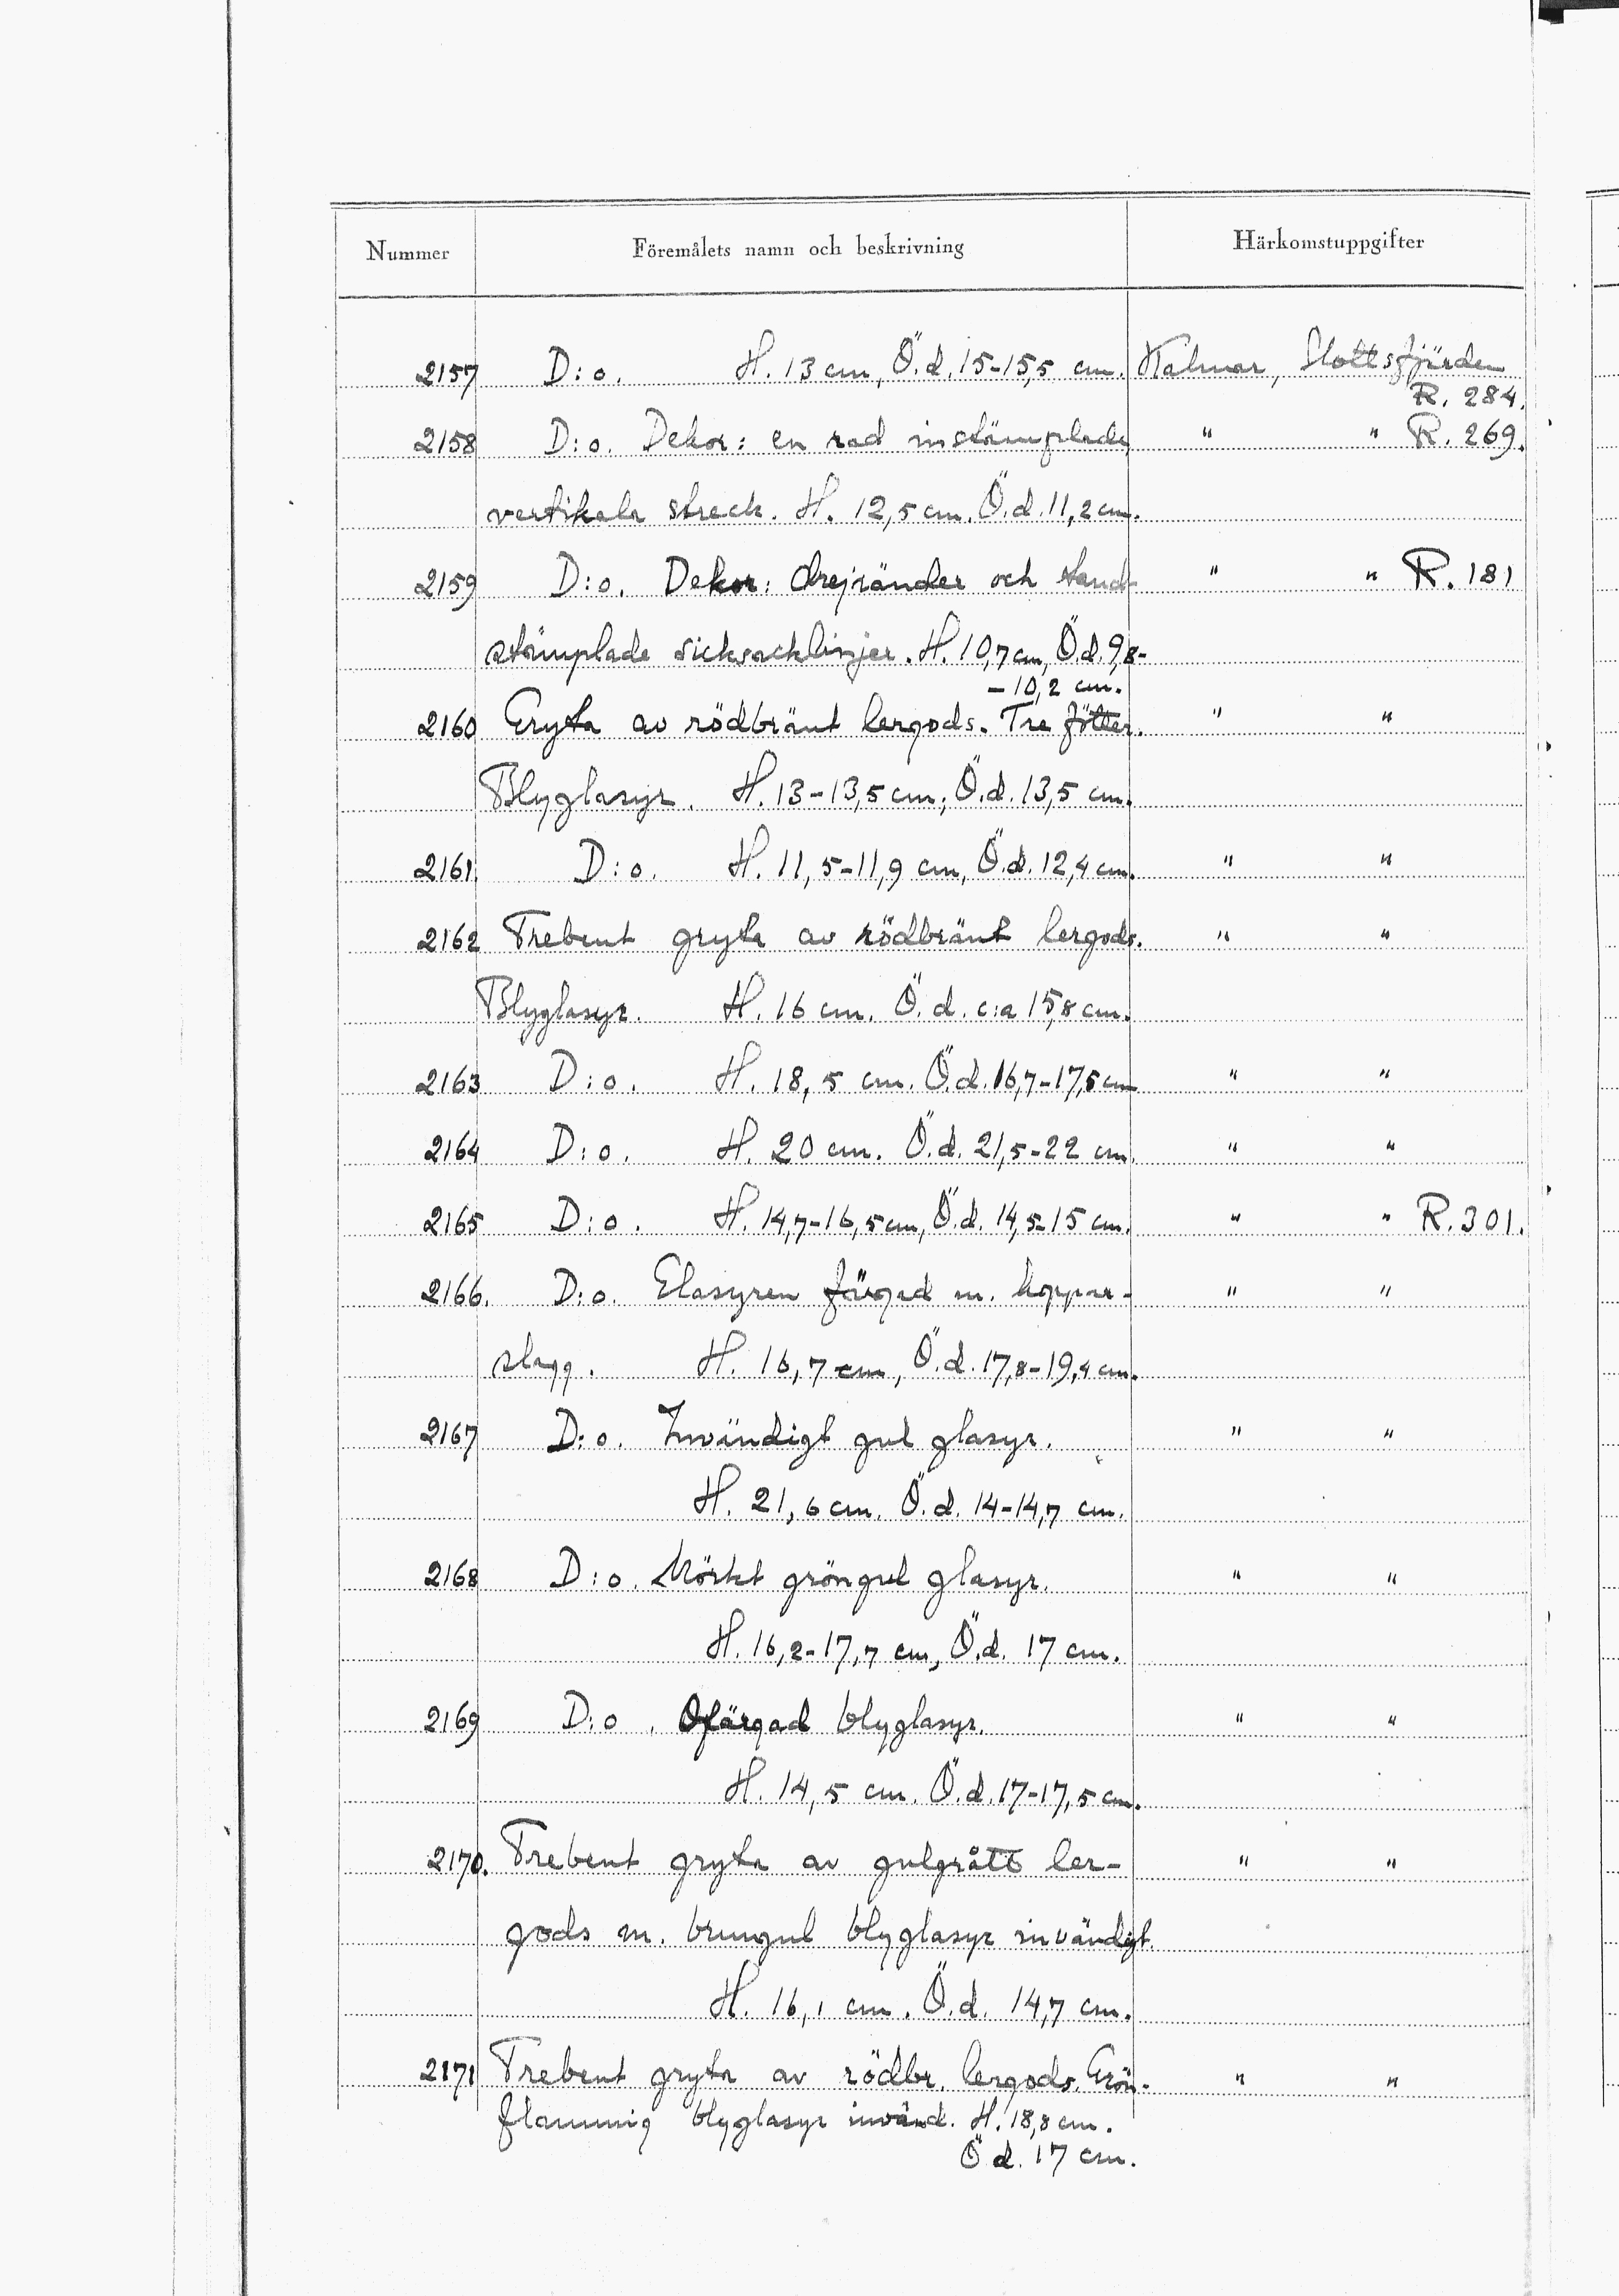 Nummer Föremålets namn och beskrivning Härkomstuppgifter
2157 D:o. H. 13 cm, Ö.d. 15-15,5 cm. Kalmar, Slottsfjärden
R. 284.
2158 D:o. Dekor: en rad instämplade " " R. 269.
vertikala streck. H. 12,5 cm. Ö.d. 11,2 cm.
2159 D:o. Dekor: drejränder och tand- " " R. 181
stämplade sicksacklinjer. H. 10,7 cm, Ö.d. 9,8-
-10,2 cm.
2160 Gryta av rödbränt lergods. Tre fötter. " "
Blyglasyr. H. 13-13,5 cm; Ö.d. 13,5 cm.
2161. D:o. H. 11,5-11,9 cm, Ö.d. 12,4 cm. " "
2162 Trebent gryta av rödbränt lergods. " "
Blyglasyr. H. 16 cm. Ö.d. c:a 15,8 cm.
2163 D:o. H. 18,5 cm. Ö.d. 16,7-17,5 cm " "
2164 D:o. H. 20 cm. Ö.d. 21,5-22 cm. " "
2165 D:o. H. 14,7-16,5 cm, Ö.d. 14,5-15 cm. " " R. 301.
2166. D:o. Glasyren färgad m. koppar- " "
slagg. H. 16,7 cm, Ö.d. 17,8-19,4 cm.
2167 D:o. Invändigt gul glasyr. " "
H. 21,6 cm. Ö.d. 14-14,7 cm.
2168 D:o. Mörkt gröngul glasyr. " "
H. 16,2-17,7 cm, Ö.d. 17 cm.
2169 D:o. Ofärgad blyglasyr. " "
H. 14,5 cm. Ö.d. 17-17,5 cm.
2170. Trebent gryta av gulgrått ler- " "
gods m. brungul blyglasyr invändigt.
H. 16,1 cm. Ö.d. 14,7 cm.
2171 Trebent gryta av rödbr. lergods. Grön- " "
flammig blyglasyr invänd. H. 18,8 cm.
Ö.d. 17 cm.